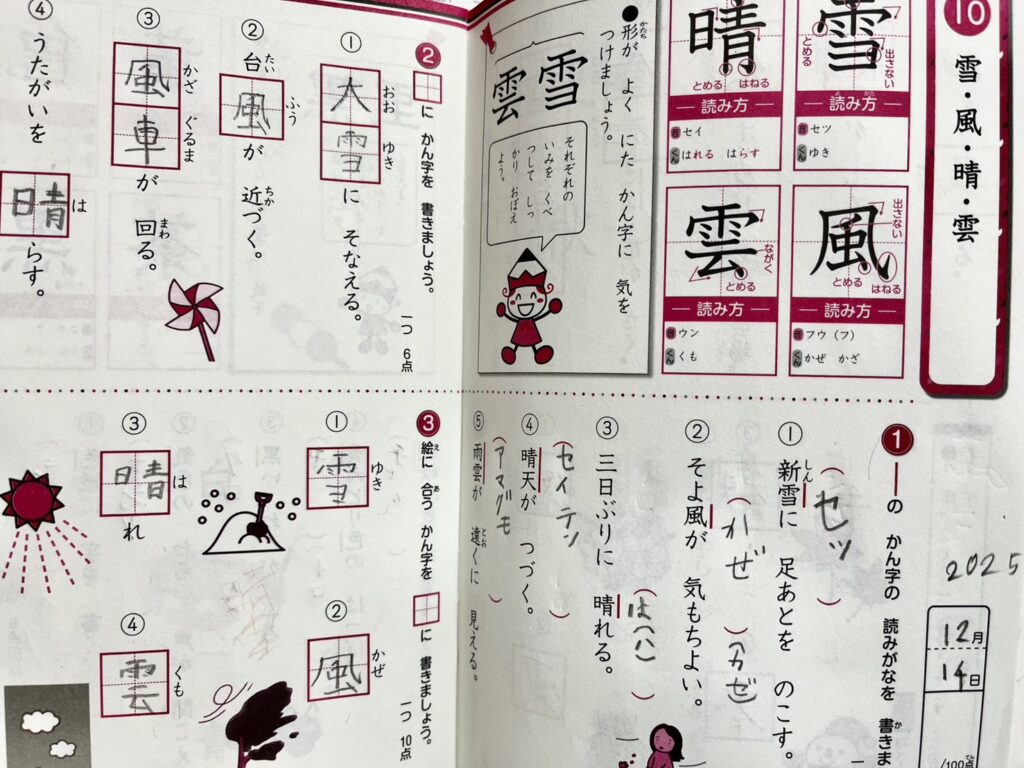 10
雪・風・晴・雲
雪
出さない
とめる
読み方
音 セツ
くん ゆき
晴
とめる
はねる
読み方
音 セイ
くん はれる はらす
風
出さない
とめる
はねる
読み方
音 フウ(フ)
くん かぜ かざ
雲
ながく
とめる
読み方
音 ウン
くん くも
●形が よく にた かん字に 気を
かたち
つけましょう。
雪
雲
それぞれの
いみを くべ
つして しっ
かり おぼえ
よう。
2025
12月
14日
/100点
てん
1 ―の かん字の 読みがなを 書きま
か
① 新雪に 足あとを のこす。
しん
(セッ)
② そよ風が 気もちよい。
(かぜ)(カゼ)
③ 三日ぶりに 晴れる。
④ 晴天が つづく。
(セイテン)
⑤ 雨雲が 遠くに 見える。
とお
(アマグモ)
2 に かん字を 書きましょう。
一つ 6点
① 大雪に そなえる。
おお ゆき
② 台風が 近づく。
たい ふう ちか
③ 風車が 回る。
かざ ぐるま まわ
④ うたがいを 晴らす。
は
3 絵に 合う かん字を に 書きましょう。
え あ
一つ 10点
① 雪
ゆき
② 風
かぜ
③ 晴れ
は
④ 雲
くも